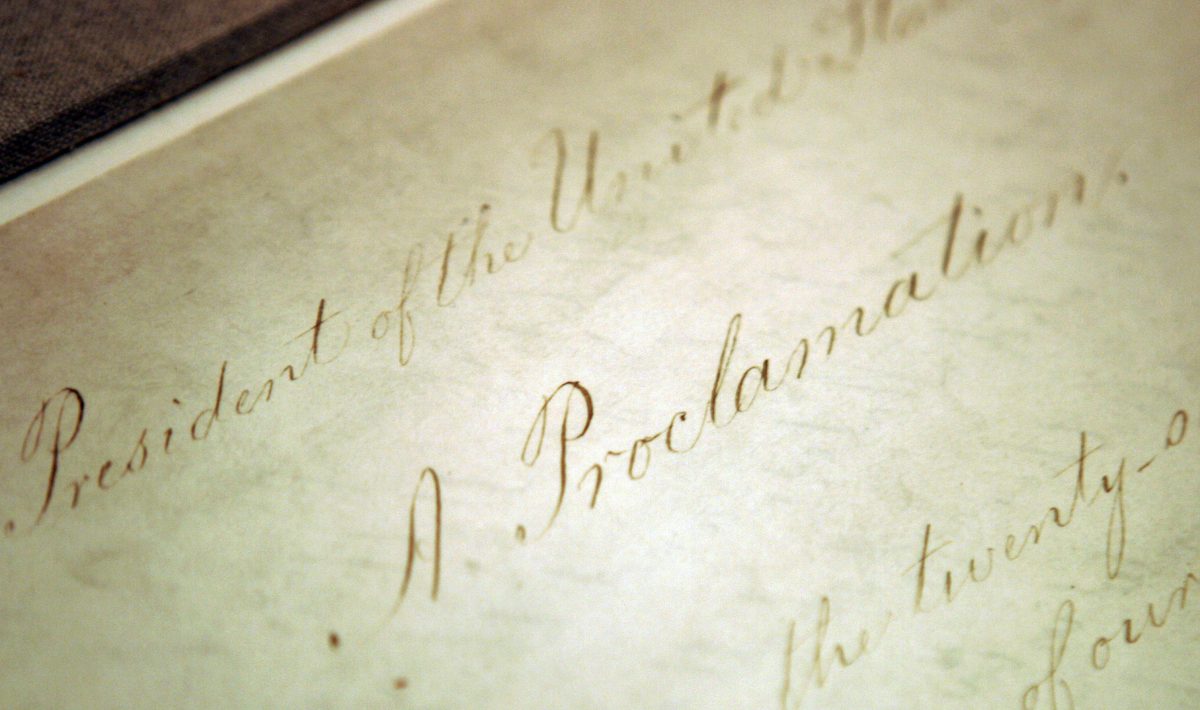 President of the United
A Proclamation.
the twenty-s
of our